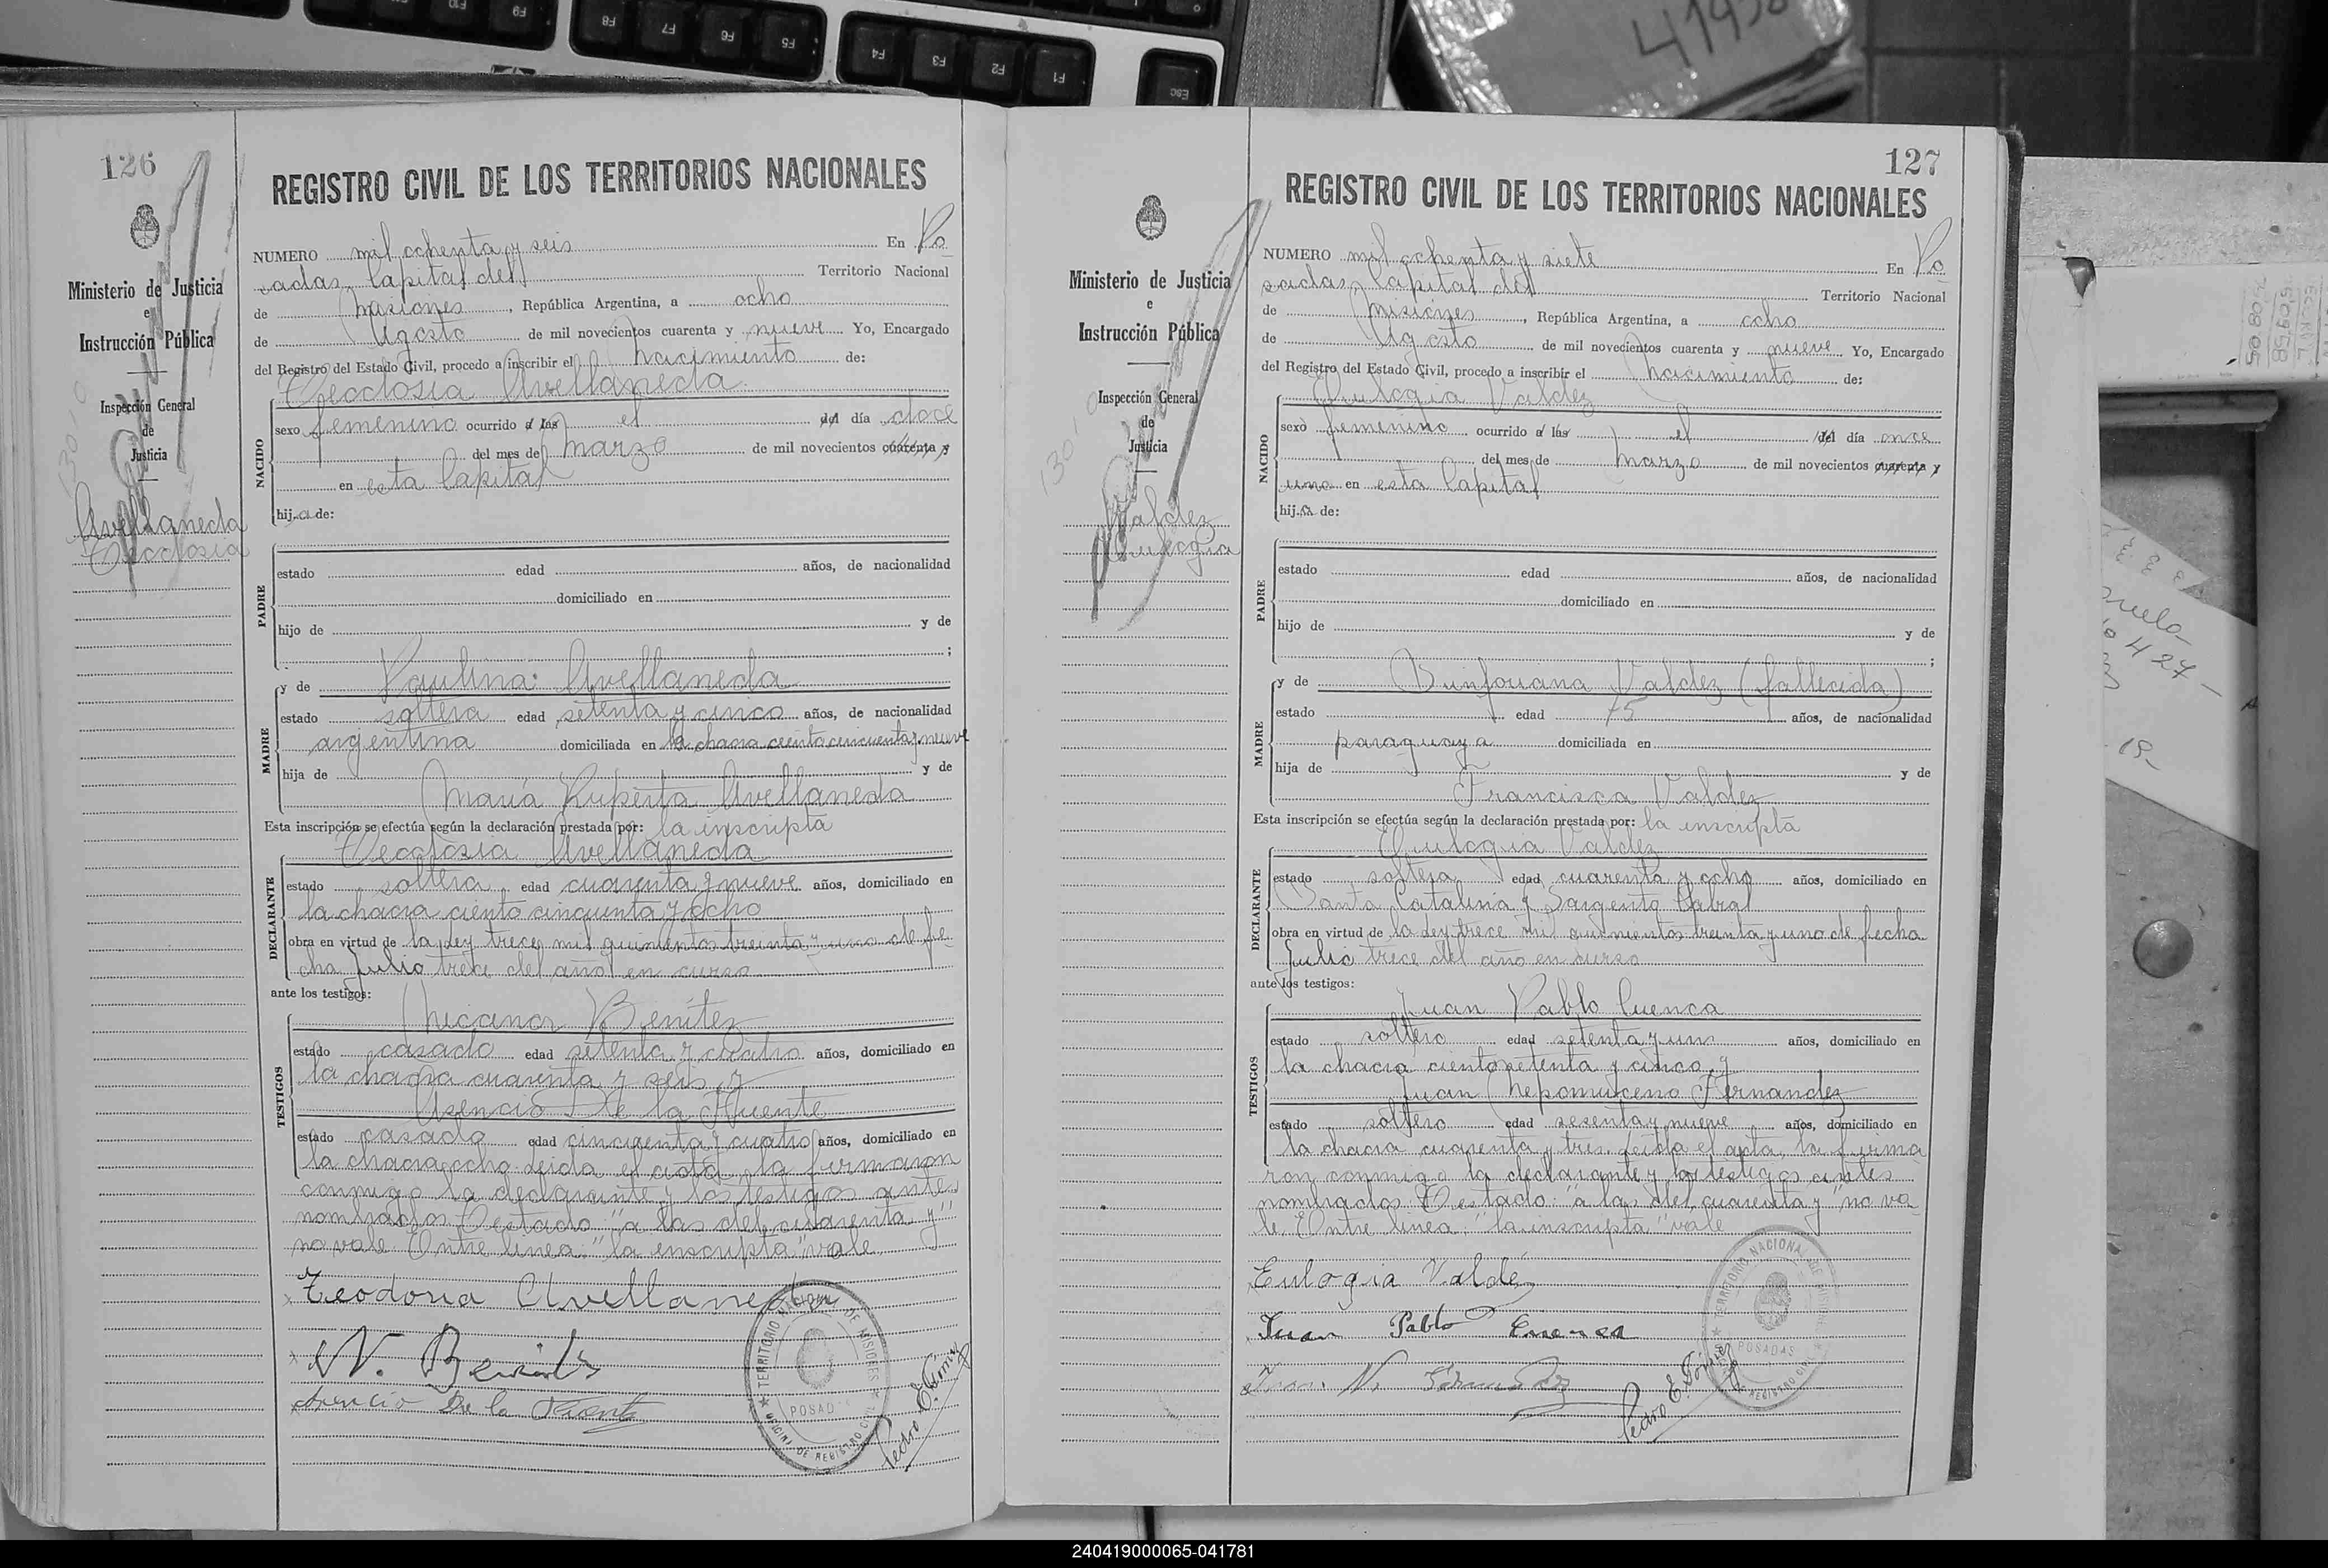 41958
126
REGISTRO CIVIL DE LOS TERRITORIOS NACIONALES
Ministerio de Justicia
e
Instrucción Pública
Inspección General
de
Justicia
Avellaneda
Teodosia
NUMERO mil ochenta y seis En Po
sadas, Capital del Territorio Nacional
de Misiones, República Argentina, a ocho
de Agosto de mil novecientos cuarenta y nueve Yo, Encargado
del Registro del Estado Civil, procedo a inscribir el nacimiento de:
Teodosia Avellaneda
NACIDO
sexo femenino ocurrido a las el del día doce
del mes de marzo de mil novecientos cuarenta y
en esta Capital
hija de:
PADRE
estado edad años, de nacionalidad
domiciliado en
hijo de y de
;
MADRE
y de Paulina Avellaneda
estado soltera edad setenta y cinco años, de nacionalidad
argentina domiciliada en la chacra ciento cincuenta y nueve
hija de y de
María Ruperta Avellaneda
Esta inscripción se efectúa según la declaración prestada por: la inscripta
Teodosia Avellaneda
DECLARANTE
estado soltera edad cuarenta y nueve años, domiciliado en
la chacra ciento cincuenta y ocho
obra en virtud de la Ley trece mil quinientos treinta y uno de fe
cha julio trece del año en curso
ante los testigos:
Nicanor Benítez
TESTIGOS
estado casado edad setenta y cuatro años, domiciliado en
la chacra cuarenta y seis y
Asencio De la Fuente
estado casado edad cincuenta y cuatro años, domiciliado en
la chacra ocho. Leida el acta, la firmaron
conmigo la declarante y los testigos antes
nombrados. Testado: "a las del, cuarenta y"
no vale. Entre linea: "la inscripta" vale
Teodoria Avellaneda
N. Benits
Asencio De la Fuente
Pedro E. Gómez
TERRITORIO NACIONAL DE MISIONES
OFICINA DE REGISTRO CIVIL
POSAD
127
REGISTRO CIVIL DE LOS TERRITORIOS NACIONALES
Ministerio de Justicia
e
Instrucción Pública
Inspección General
de
Justicia
Valdez
Eulogia
NUMERO mil ochenta y siete En Po
sadas, Capital del Territorio Nacional
de Misiones, República Argentina, a ocho
de Agosto de mil novecientos cuarenta y nueve Yo, Encargado
del Registro del Estado Civil, procedo a inscribir el nacimiento de:
Eulogia Valdez
NACIDO
sexo femenino ocurrido a las el del día once
del mes de marzo de mil novecientos cuarenta y
uno en esta Capital
hija de:
PADRE
estado edad años, de nacionalidad
domiciliado en
hijo de y de
;
MADRE
y de Valdez (fallecida)
estado edad 75 años, de nacionalidad
paraguaya domiciliada en
hija de y de
Francisca Valdez
Esta inscripción se efectúa según la declaración prestada por: la inscripta
Eulogia Valdez
DECLARANTE
estado soltera edad cuarenta y ocho años, domiciliado en
Santa Catalina y Sargento Cabral
obra en virtud de la Ley trece mil quinientos treinta y uno de fecha
Julio trece del año en curso
ante los testigos:
Juan Pablo Cuenca
TESTIGOS
estado soltero edad setenta y un años, domiciliado en
la chacra ciento setenta y cinco y
Juan Nepomuceno Fernandez
estado soltero edad sesenta y nueve años, domiciliado en
la chacra cuarenta y tres. Leida el acta, la firma
ron conmigo la declarante y los testigos antes
nombrados. Testado: "a las del, cuarenta y" no va
le. Entre linea: "la inscripta" vale
Eulogia Valdéz
Juan Pablo Cuenca
Juan N. Fernandez
Pedro E. Gómez
TERRITORIO NACIONAL DE MISIONES
REGISTRO CIVIL
POSADAS
240419000065-041781